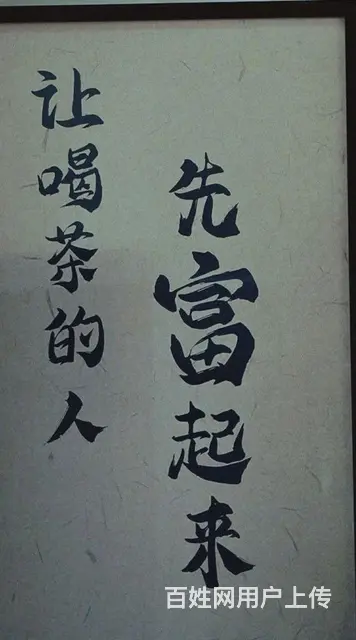 让喝茶的人
先富起来
百姓网用户上传